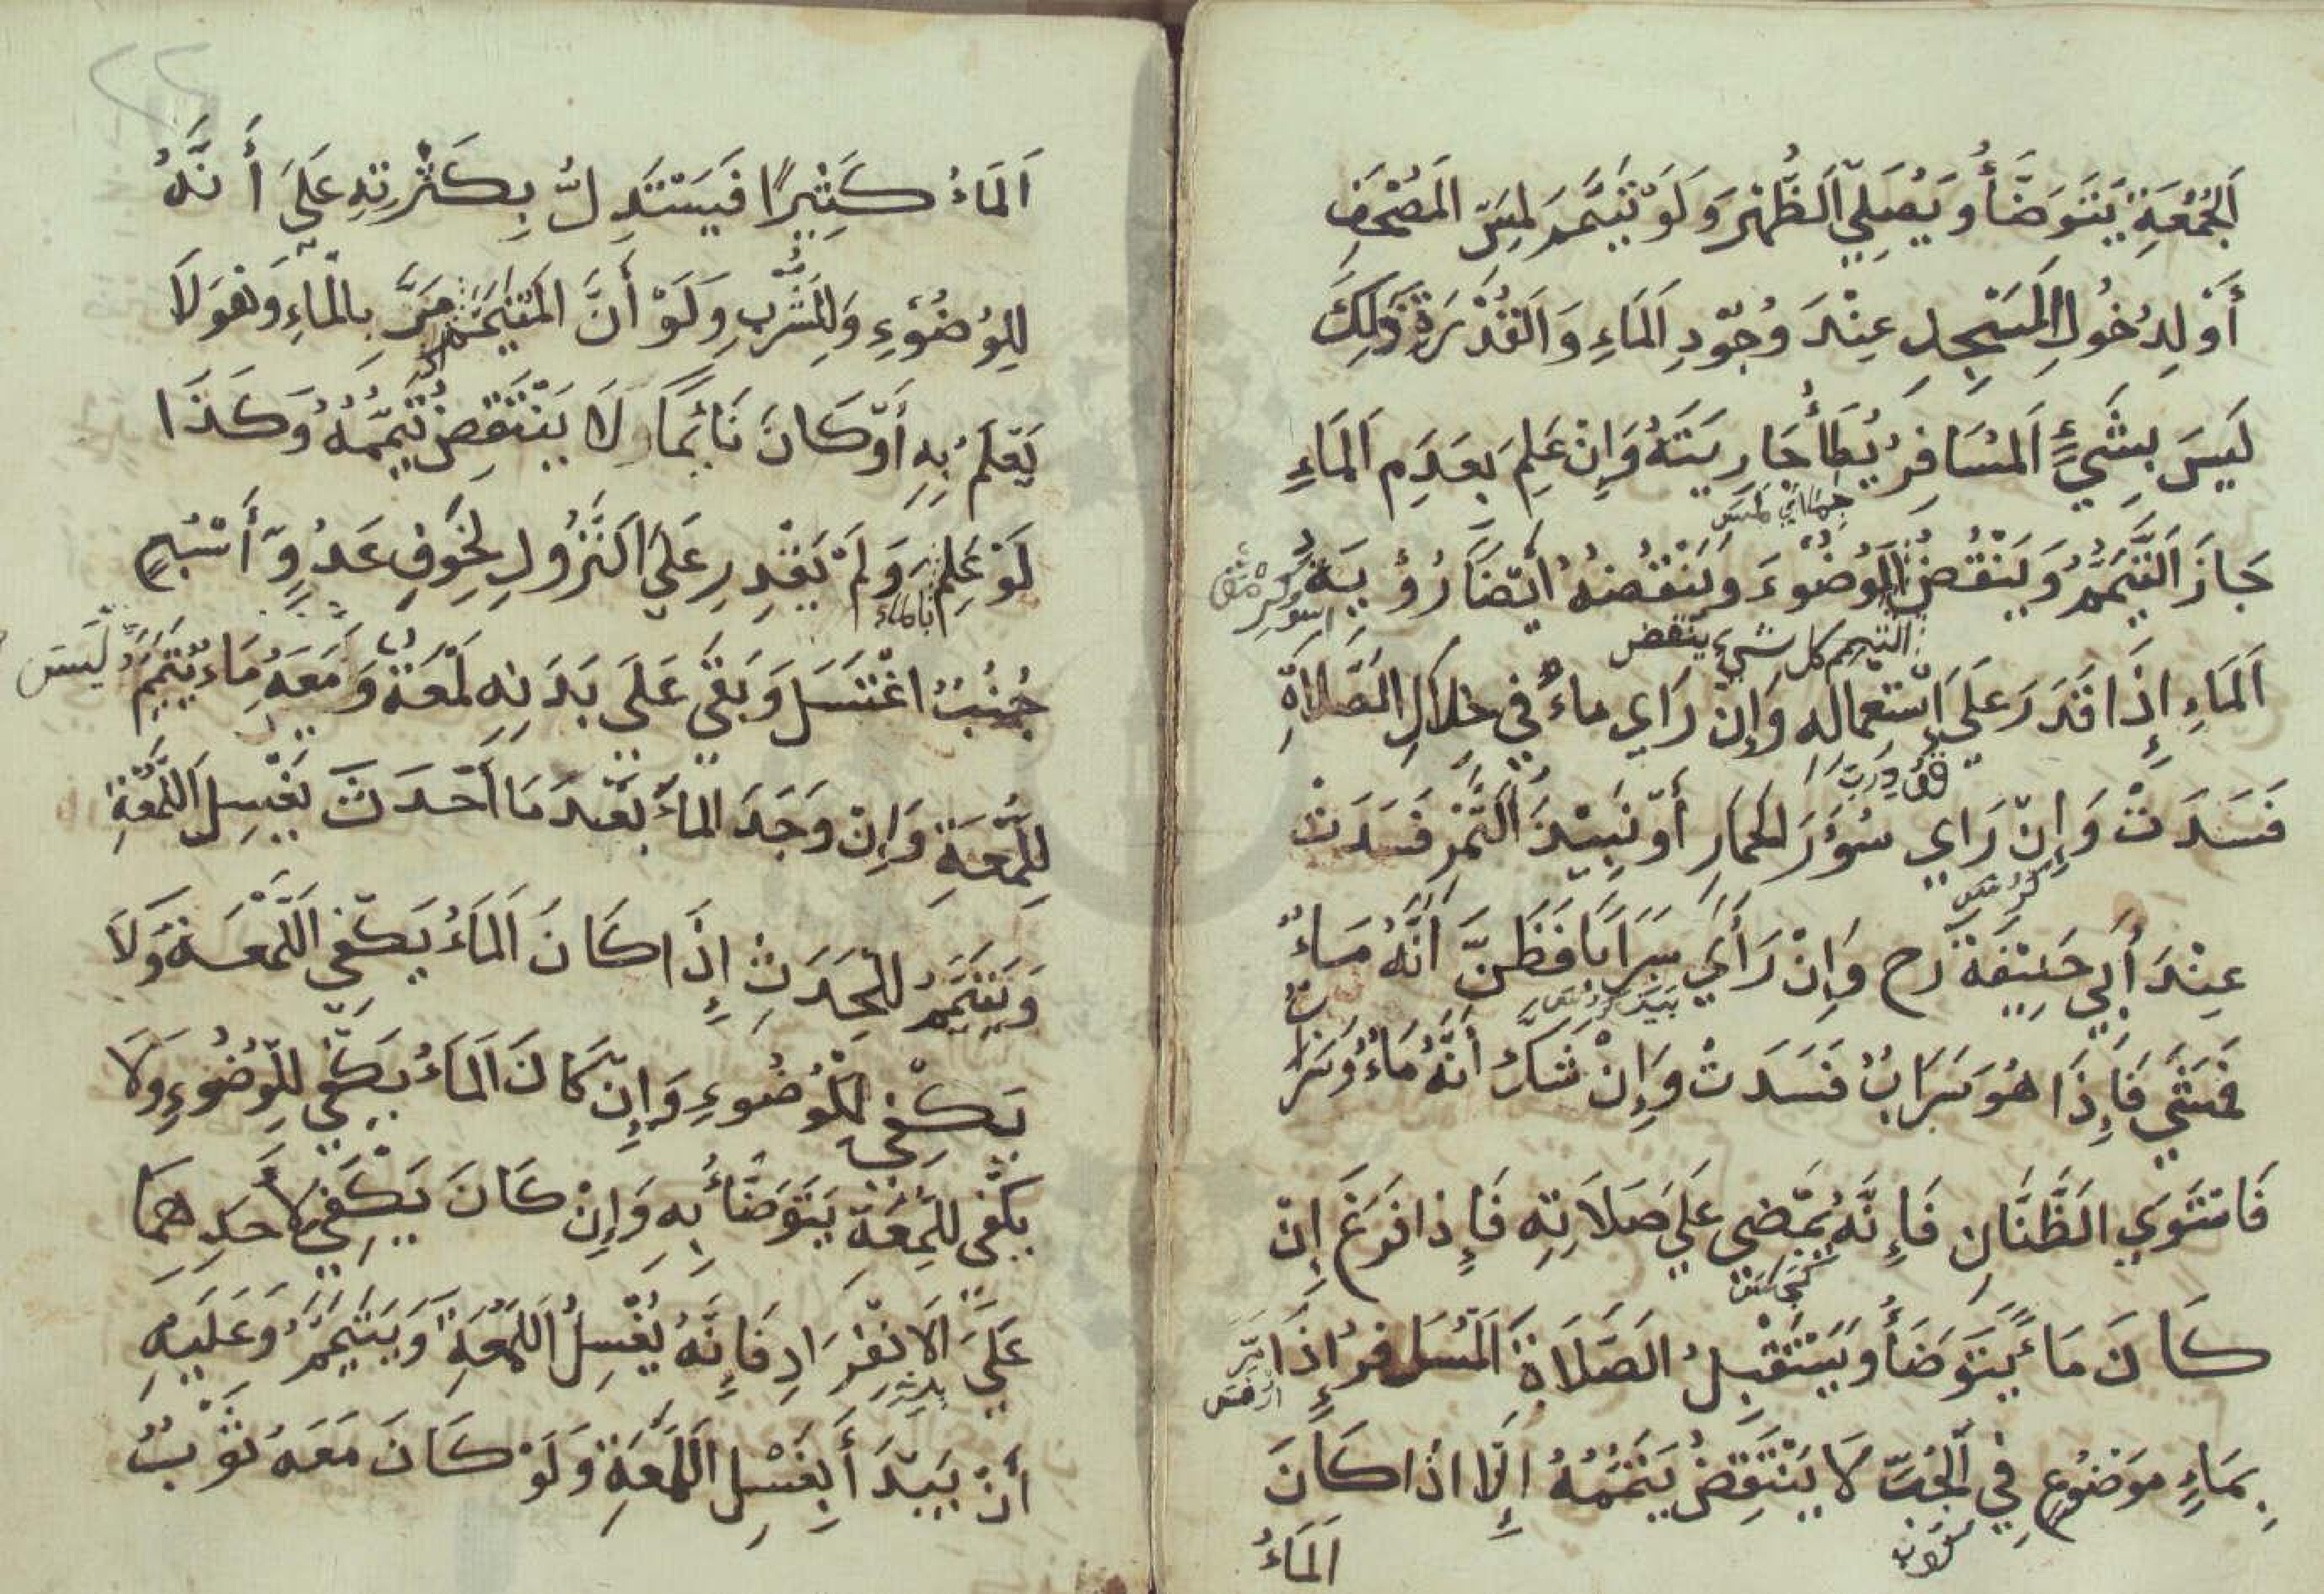 اَلجُمُعَةِ يَتَوَضَّأُ وَيُصَلِّي اَلظُّهْرَ وَلَوْ تَيَمَّمَ لِمَسِّ المُصْحَفِ
أَوْ لِدُخُولِ المَسْجِدِ عِنْدَ وُجُودِ اَلمَاءِ وَالقُدْرَةِ فَذَلِكَ
لَيسَ بِشَيْءٍ اَلمُسَافِرُ يُطَأُ جَارِيَتَهُ وَاِنْ عَلِمَ بِعَدَمِ اَلمَاءِ
جَازَ اَلتَّيَمُّمُ وَيَنْقُضُ الوُضُوءَ وَيَنْقُضُهُ اَيْضَا رُؤيَة
التيمم كل شيء ينقض
اَلمَاءِ إِذَا قَدَرَ عَلَى اِسْتِعْمَالِه وَاِنْ رَاي مَاءً فِي خِلَالِ الصَّلَاةِ
فَسَدَتْ وَاِنْ رَاي سُؤْرَ الحِمَارِ أَوْ نَبِيْذَ التَّمْرِ فَسَدَتْ
عِنْدَ أَبِي حَنِيْفَةَ رح وَاِنْ رَأَيَ سَرَابًا فَظَنَّ اَنَّهُ مَاءٌ
فَمَشَي فَاِذَا هُوَ سَرَابٌ فَسَدَتْ وَاِنْ شَكَّ اَنَّهُ مَاءٌ وَسَرَابٌ
فَاسْتَوَي الظَّنَّانِ فَاِنَّهُ يَمْضِي عَلَي صَلَاتِهِ فَاِذَا فَرَغَ اِنْ
كَانَ مَاءً يَتَوَضَأُ وَيَسْتَقْبِلُ الصَّلَاةَ اَلمُسَافِرُ إِذَا مَرَّ
بِمَاءٍ مَوضُوعٍ فِي الجُبِّ لَا يَنْتَقِضُ تَيَمُّمُهُ اِلَّا اذَا كَانَ
اَلمَاءُ
اَلمَاءُ كَثِيْرًا فَيَسْتَدِلُّ بِكَثْرَتِهِ عَلَىَ أَنَّهُ
لِلوُضُوْءِ وَلِلشُّرْبِ وَلَوْ أَنَّ المُتَيَمِّمَ مَرَّ بِالمَاءِ وَهُوَ لَا
يَعْلَمُ بِهِ أَوْ كَانَ نَائِمًا لَا يَنْتَقِضُ تَيَمُّمُهُ وَكَذَا
لَوْ عَلِمَ وَلَمْ يَقْدِرْ عَلَي النُّزُولِ لِخَوْفِ عَدُوٍّ أَسْبُعٍ
بالماء
جُنُبٌ اغْتَسَلَ وَبَقَي عَلَى بَدَنِهِ لُمْعَةٌ وَمَعَهُ مَاءٌ يَتَيَمَّمُ
ليسَ
لِلُّمْعَةِ وَاِنْ وَجَدَ المَاءَ بَعْدَ مَا اَحْدَثَ يَغْسِلُ اَللُّمْعَةِ
وَيَتَيَمَّمُ لِلْحَدَثِ إِذَا كَانَ اَلمَاءُ يَكْفِي اَللُّمْعَةَ وَلَا
يَكْفِي لِلْوُضُوءِ وَاِنْ كَانَ اَلمَاءُ يَكْفِي لِلْوُضُوءِ وَلَا
يَكْفِي لِلُّمْعَةِ يَتَوَضَّأُ بِهِ وَاِنْ كَانَ يَكْفِي لِأَحَدِهِمَا
عَلَيَ الِانْفِرَادِ فَاِنَّهُ يَغْسِلُ اللُّمْعَةَ وَيَتَيَمَّمُ وَعَلَيهِ
أَنْ يَبْدَأَ بِغَسْلِ اللُّمْعَةِ وَلَوْ كَانَ مَعَهُ ثَوْبٌ